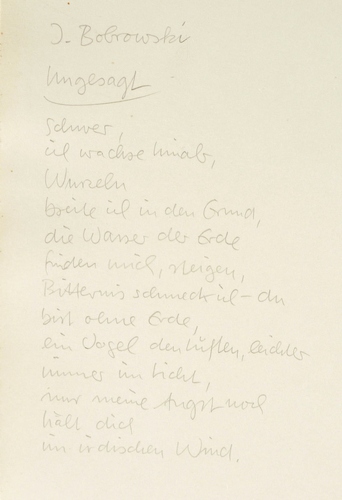 J. Bobrowski
Ungesagt
Schwer,
ich wachse hinab,
Wurzeln
breite ich in den Grund,
die Wasser der Erde
finden mich, steigen,
Bitternis schmeck ich – du
bist ohne Erde,
ein Vogel den Lüften, leichter
immer im Licht,
nur meine Angst noch
hält dich
im irdischen Wind.